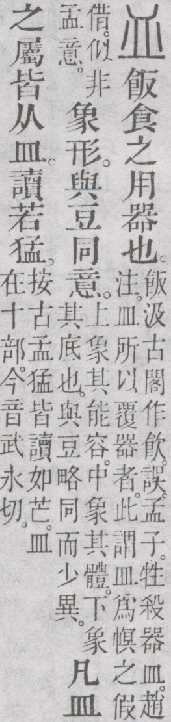 皿 飯食之用器也。
飯汲古閣作飮誤。孟子牲殺器皿趙
注。皿所以覆器者。此謂皿爲幎之假
借。似非
孟意。
象形。與豆同意。
上象其能容。中象其體。下象
其底也。與豆略同而少異。
凡皿
之屬皆从皿。讀若猛。
按古孟猛皆讀如芒。皿
在十部。今音武永切。